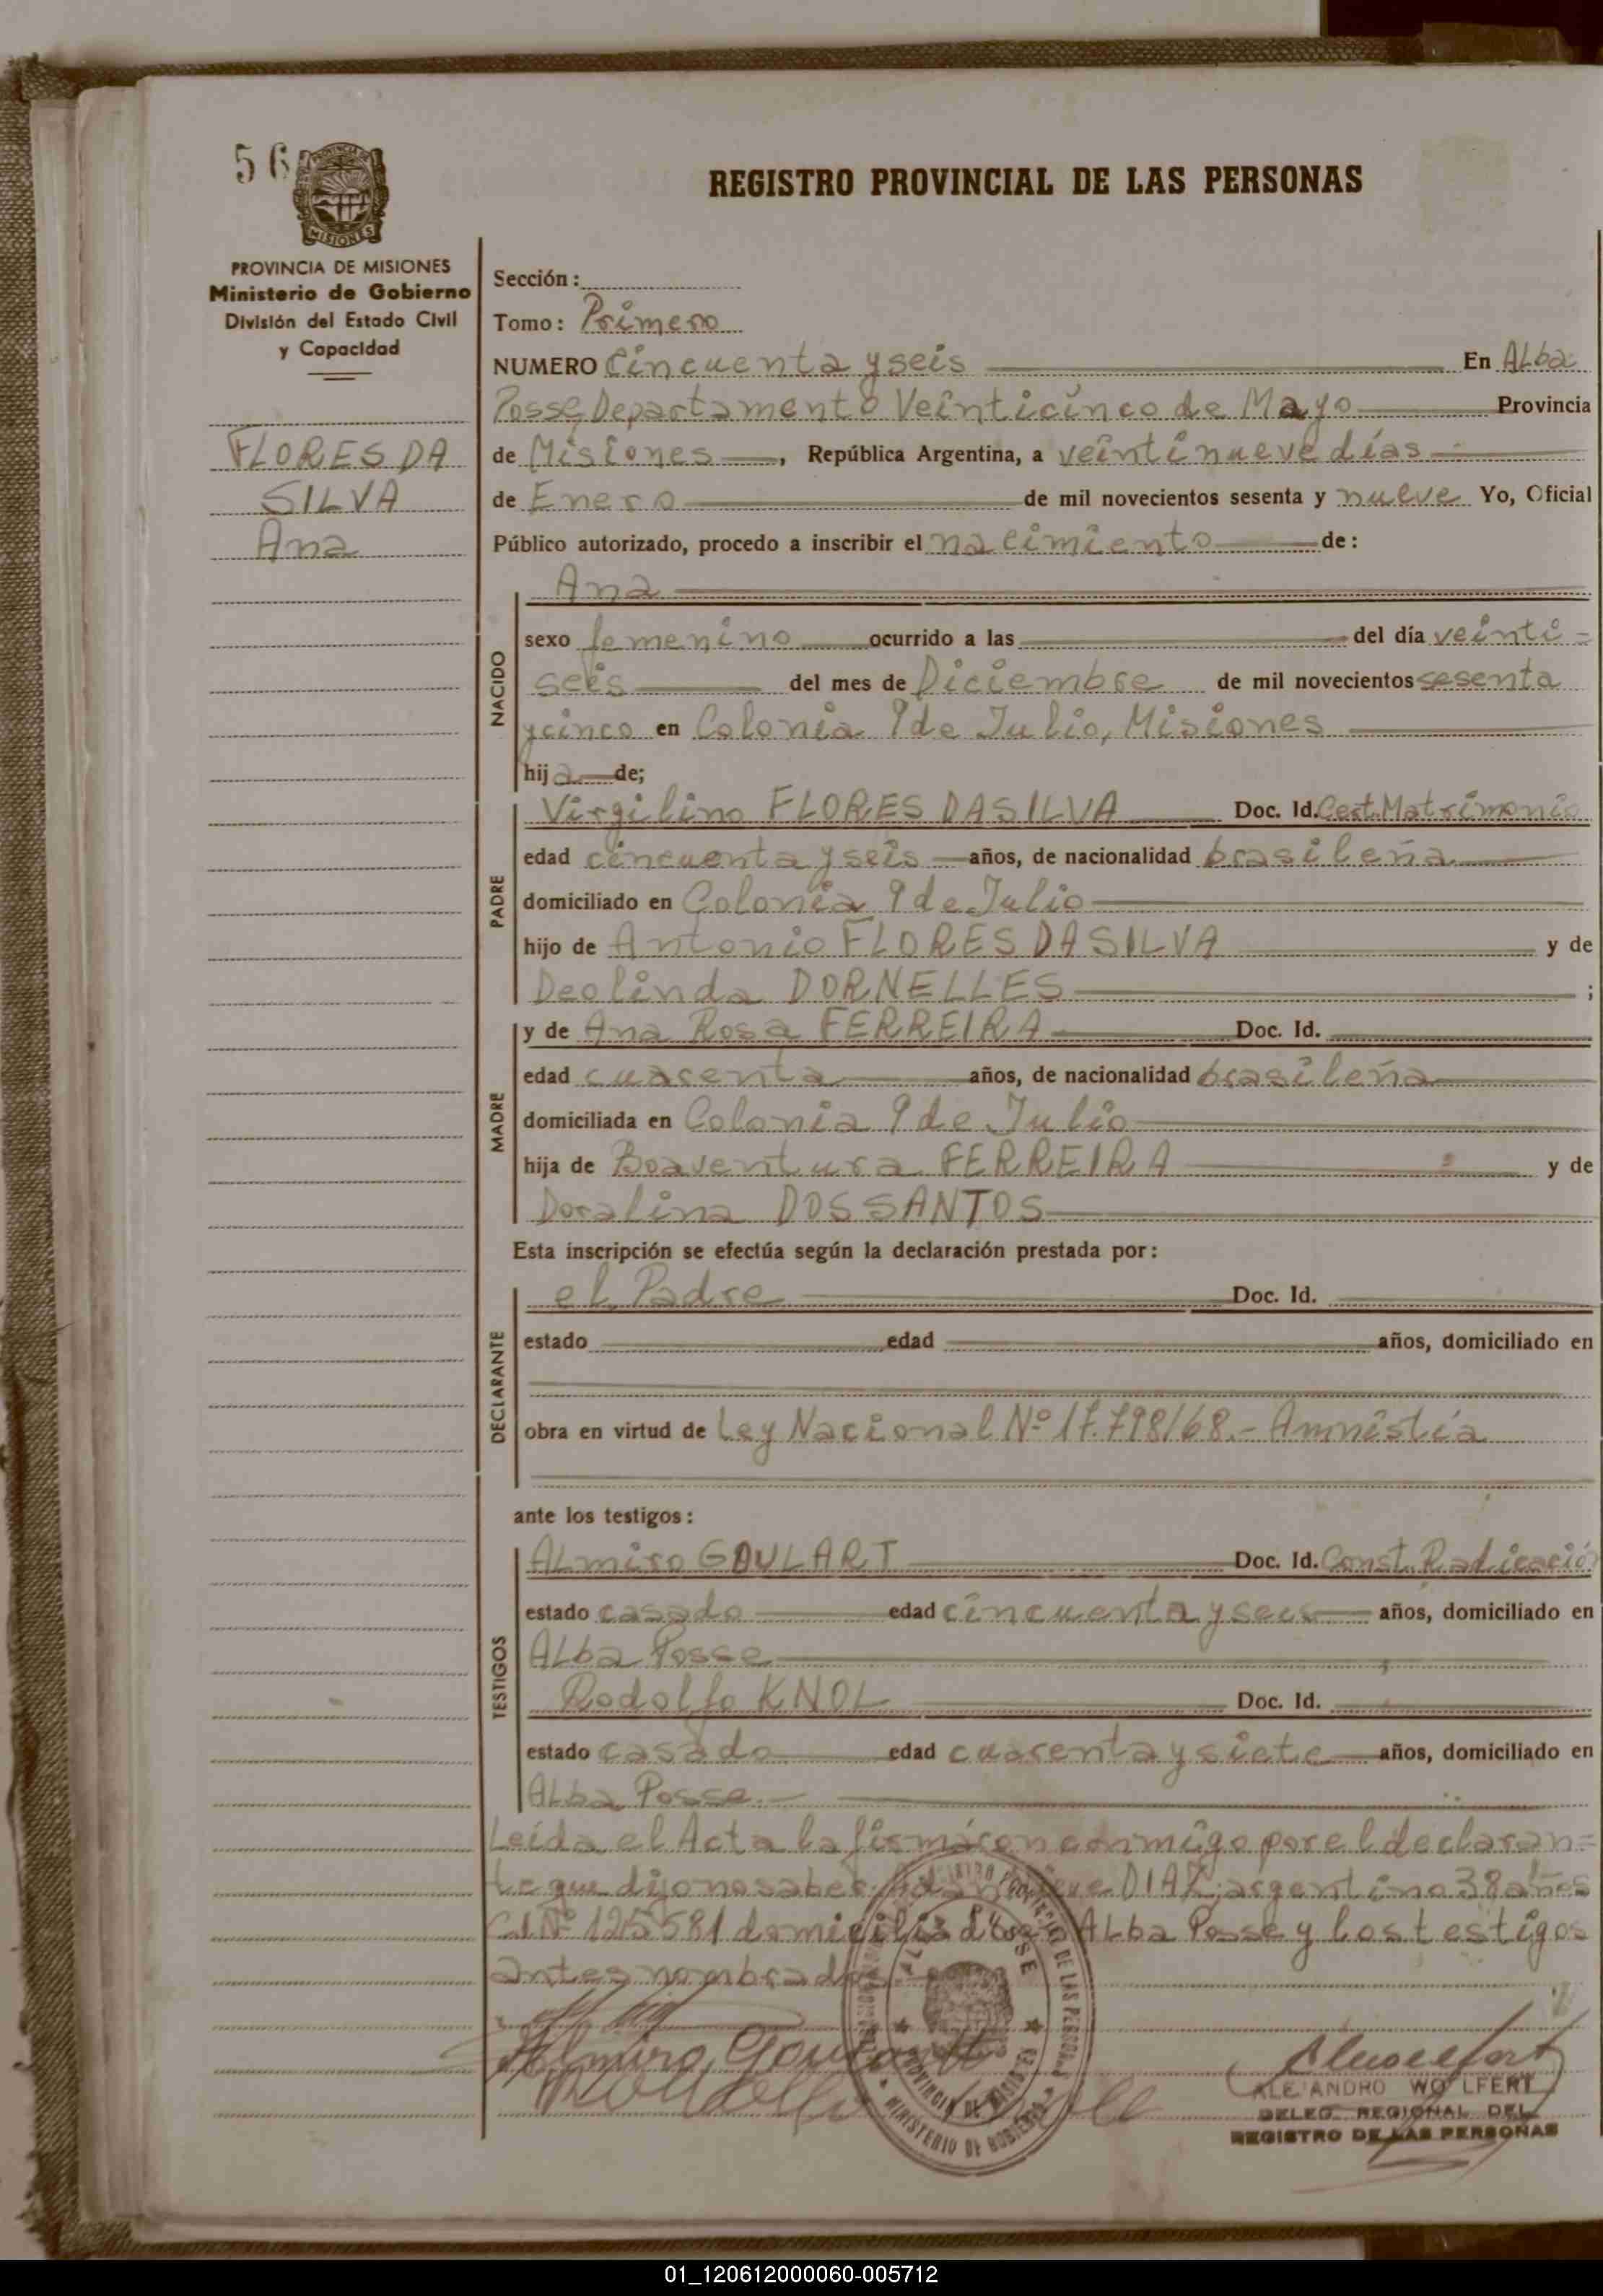 56
PROVINCIA DE MISIONES
Ministerio de Gobierno
División del Estado Civil
y Capacidad
FLORES DA
SILVA
Ana
REGISTRO PROVINCIAL DE LAS PERSONAS
Sección:
Tomo: Primero
NUMERO Cincuenta y seis En Alba
Posse, Departamento Veinticinco de Mayo Provincia
de Misiones, República Argentina, a veintinueve días
de Enero de mil novecientos sesenta y nueve Yo, Oficial
Público autorizado, procedo a inscribir el nacimiento de:
NACIDO
Ana
sexo femenino ocurrido a las del día veinti=
seis del mes de Diciembre de mil novecientos sesenta
y cinco en Colonia 9 de Julio, Misiones
hija de;
PADRE
Virgilino FLORES DA SILVA Doc. Id. Cert. Matrimonio
edad cincuenta y seis años, de nacionalidad brasileña
domiciliado en Colonia 9 de Julio
hijo de Antonio FLORES DA SILVA y de
Deolinda DORNELLES ;
MADRE
y de Ana Rosa FERREIRA Doc. Id.
edad cuarenta años, de nacionalidad brasileña
domiciliada en Colonia 9 de Julio
hija de Boaventura FERREIRA y de
Doralina DOS SANTOS
Esta inscripción se efectúa según la declaración prestada por:
DECLARANTE
el Padre Doc. Id.
estado edad años, domiciliado en
obra en virtud de Ley Nacional Nº 17.798/68.- Amnistía
ante los testigos:
TESTIGOS
ALmiro GOULART Doc. Id. Const. Radicación
estado casado edad cincuenta y seis años, domiciliado en
Alba Posse
Rodolfo KNOL Doc. Id.
estado casado edad cuarenta y siete años, domiciliado en
Alba Posse.-
Leída el Acta la firmáron conmigo por el declaran=
te que dijo no saber DIAZ, argentino 38 años
C.I Nº 125581 domiciliado en Alba Posse y los testigos
antes nombrados
Almiro Goulart
ALEJANDRO WOLFERT
DELEG. REGIONAL DEL
REGISTRO DE LAS PERSONAS
PROVINCIA DE MISIONES
MINISTERIO DE GOBIERNO
01_120612000060-005712